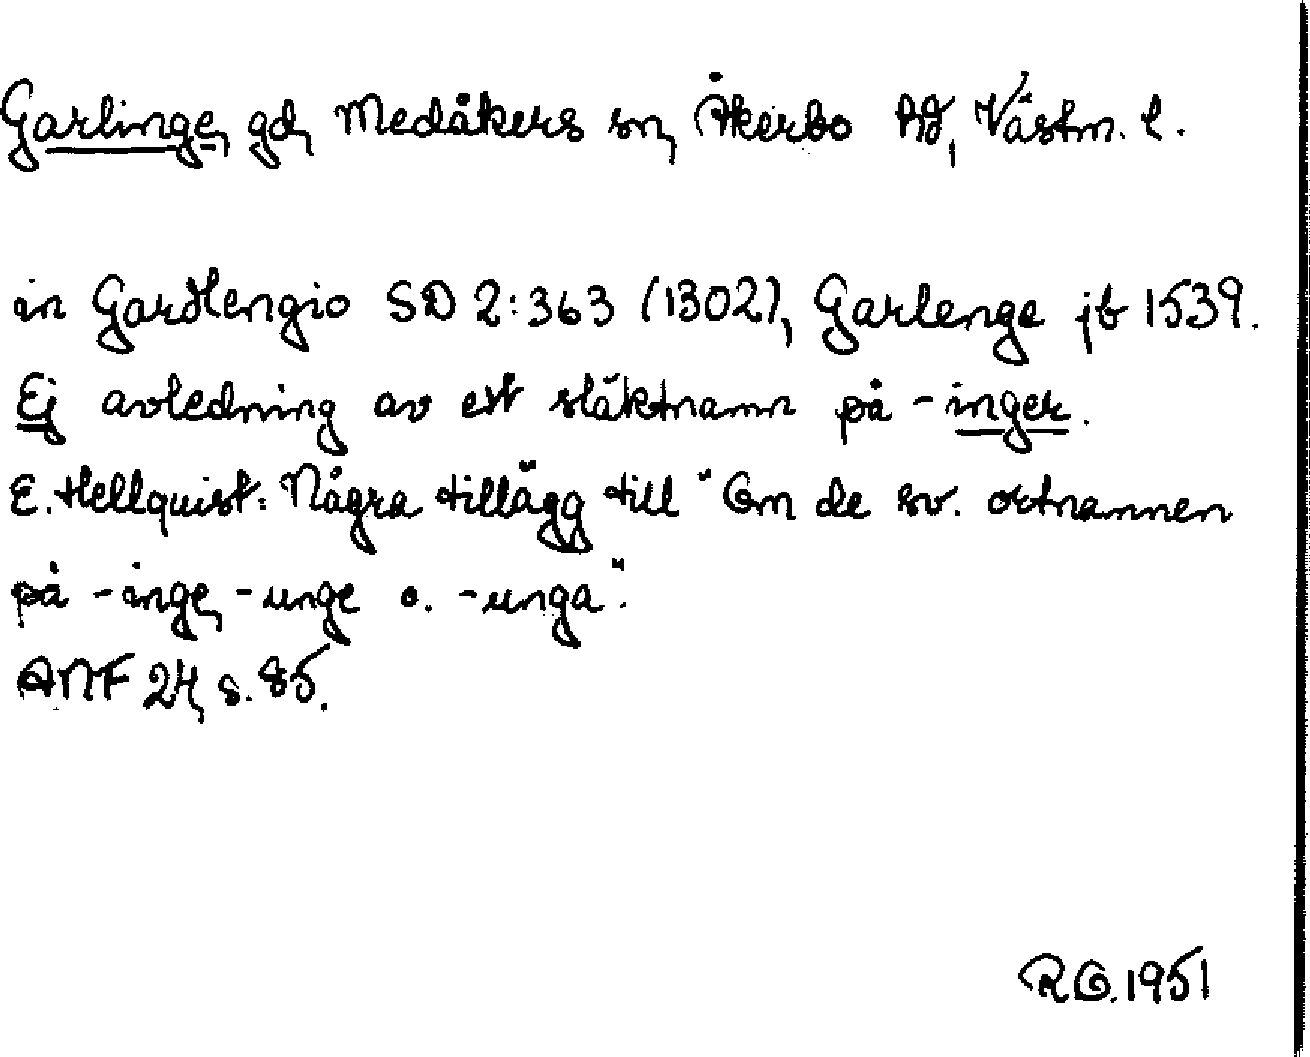 Garlinge, gd, Medåkers sn, Åkerbo hd, Västm. l.
in Gardlengio SD 2:363 (1302), Garlenge jb 1539.
Ej avledning av ett släktnamn på -inger.
E. Hellquist: Några tillägg till "Om de sv. ortnamnen
på -inge, -unge o. -unga".
ANF 24, s. 85.
RO. 1951